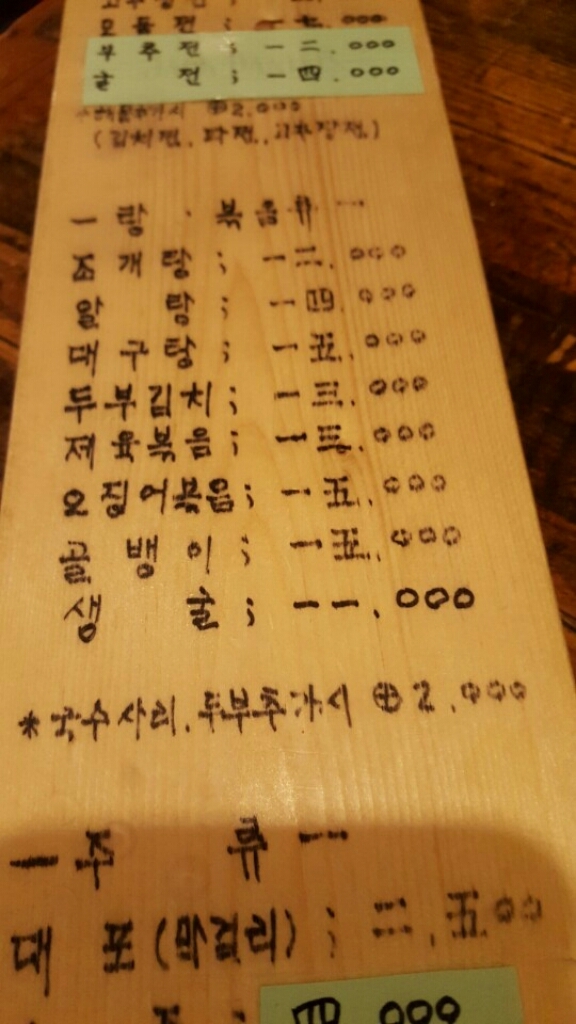 모듬전; 一七.000
부추전; 一二.000
굴 전; 一四.000
⊕2,000
(김치전, 파전, 고추장전)
一탕 · 볶음류一
조개탕; 一二.000
알 탕; 一四.000
대구탕; 一五.000
두부김치; 一三.000
제육볶음; 一三.000
오징어볶음; 一五.000
골뱅이; 一五.000
생 굴; 一一.000
*국수사리, 두부추가시 ⊕2.000
一주 류一
대 포(막걸리); 二.五00
四.000